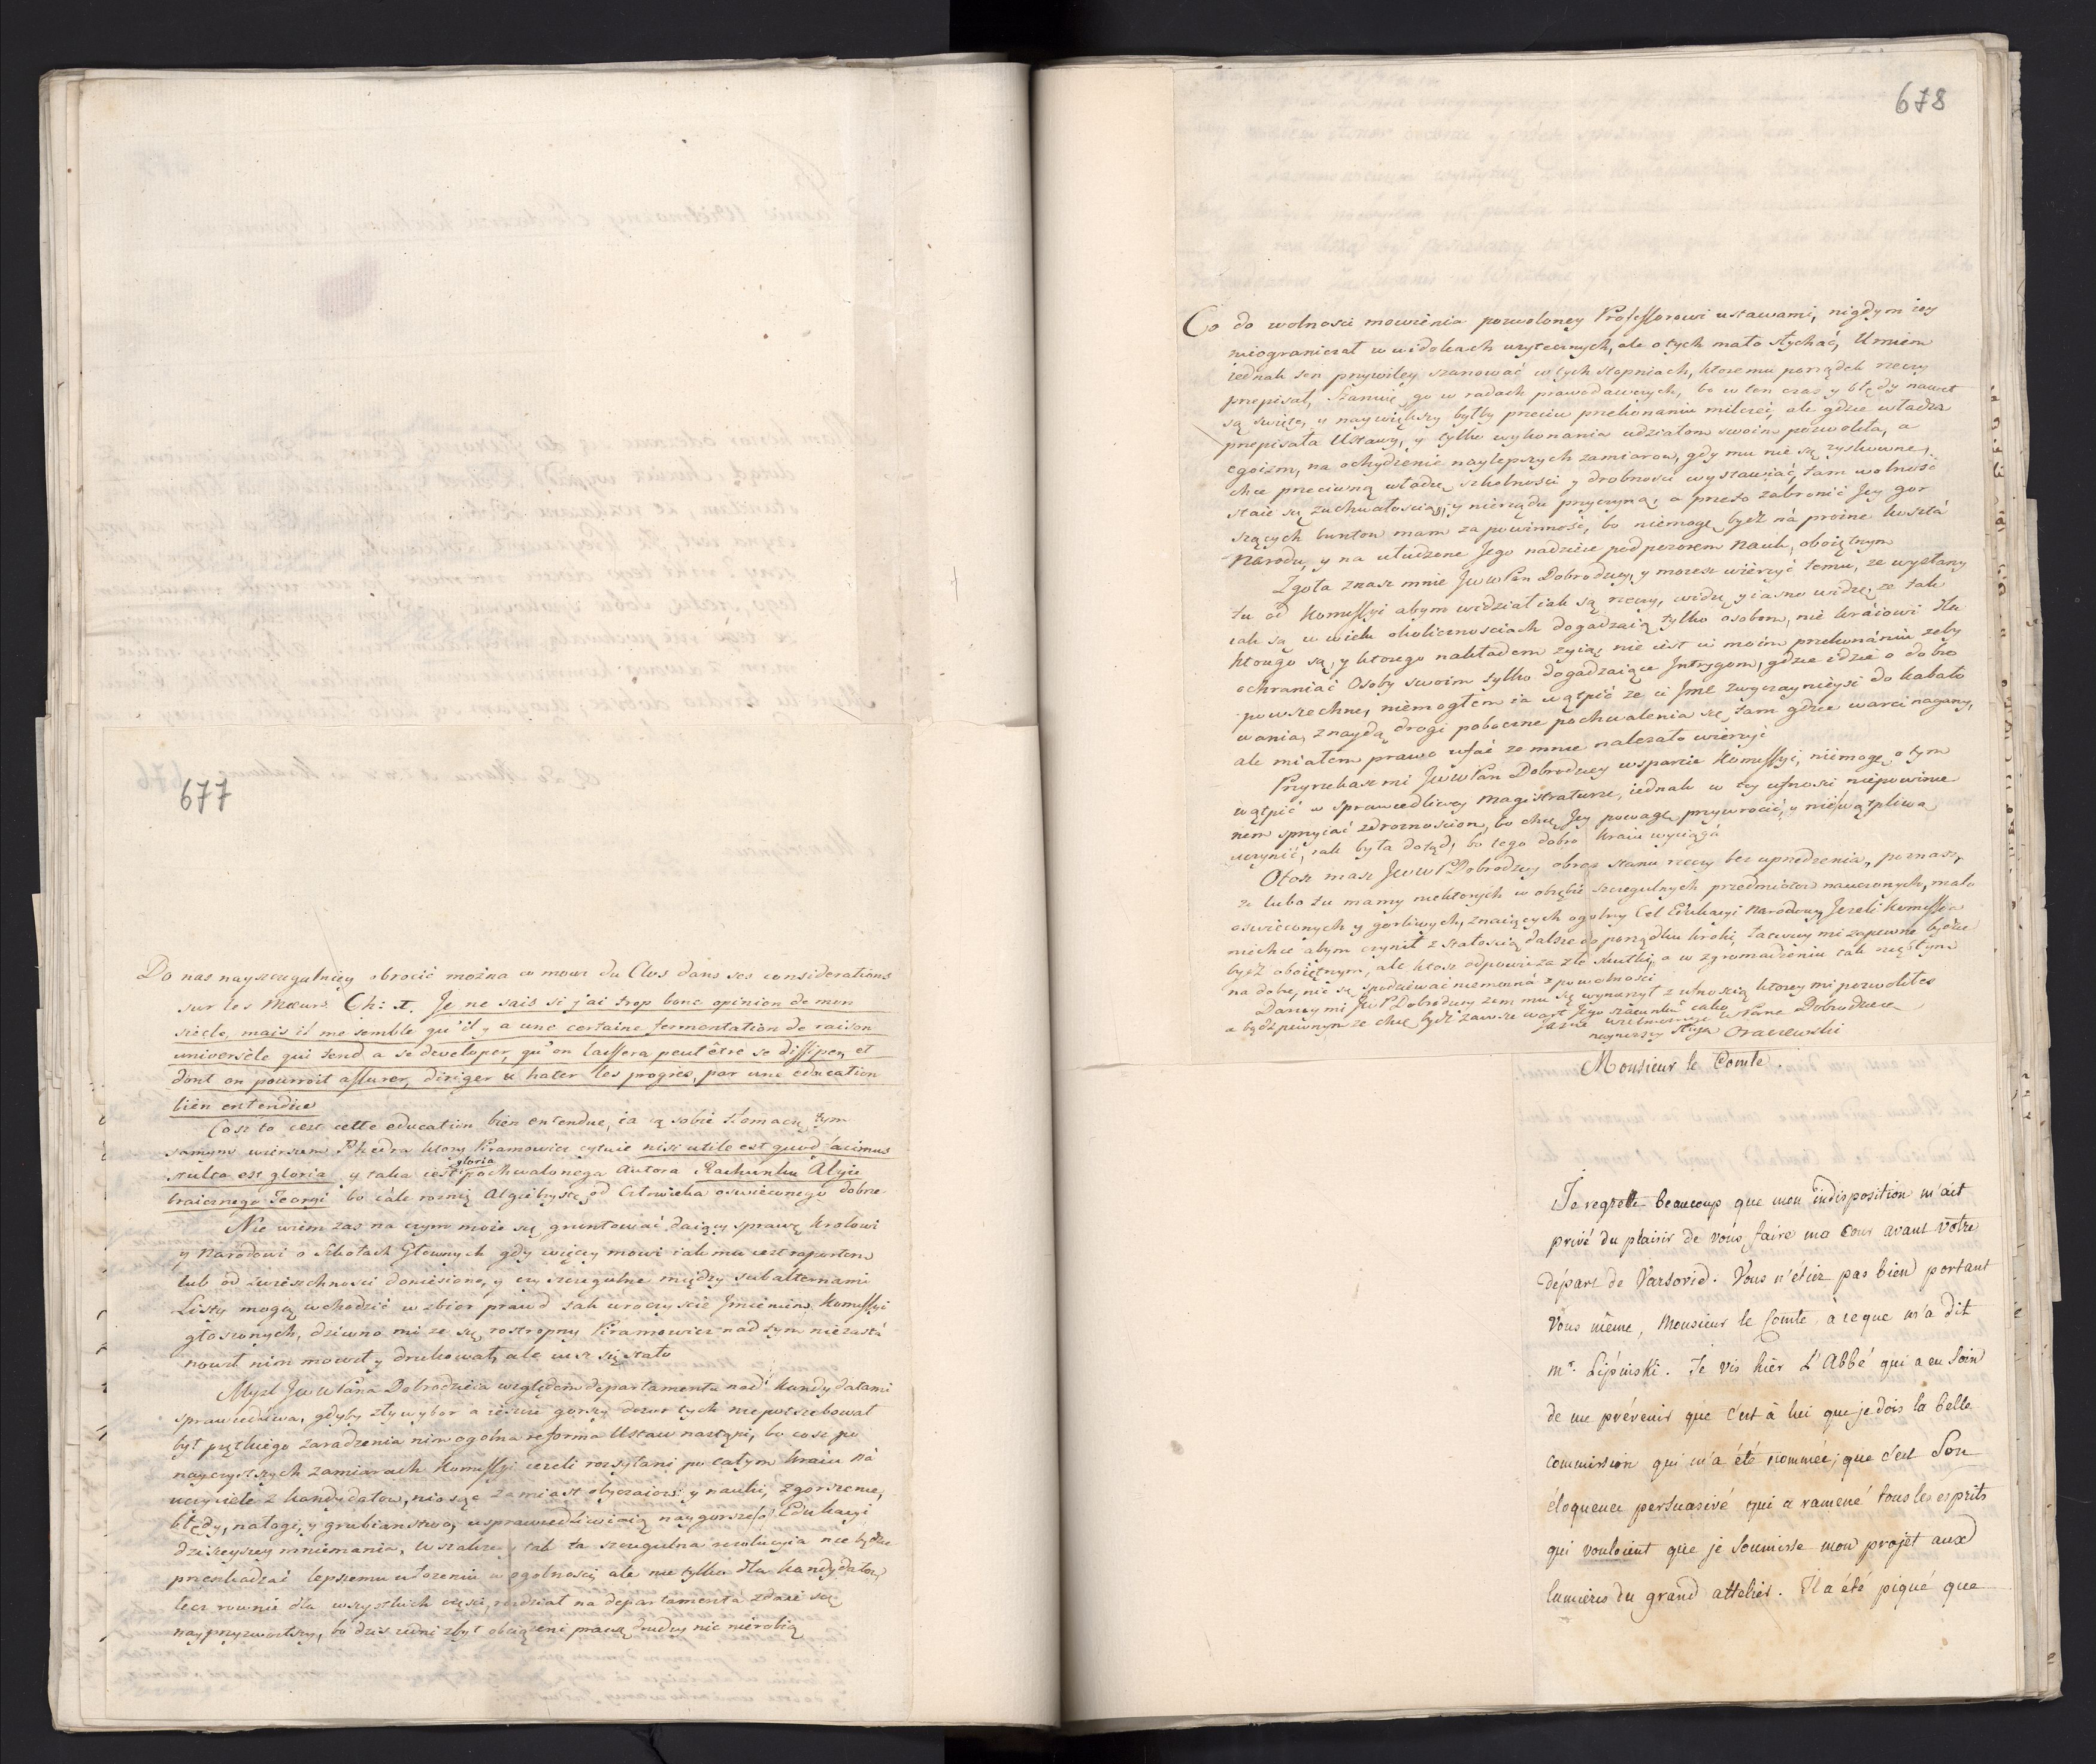 677
Do nas nayszczegulniey obrocić można co mowi du Clos dans ses considerations
sur les Mœurs Ch: I. Je ne sais si j'ai trop bone opinion de mon
siecle, mais il me semble qu'il y a une certaine fermentation de raison
universele qui tend a se developer, qu'on laissera peut être se dissiper, et
dont on pourroit assurer, diriger & hater les progrès, par une education
bien entendue
Cosz to iest cette education bien entendue, ia ią sobie tłomaczę tym
samym wierszem Phedra ktory Piramowicz cytuie nisi utile est quod facimus
stulta est gloria y taka iest gloria pochwalonego Autora Rachunku Algie
braicznego Jeorgi bo cale rożnię Algiebrystę od Człowieka oswieconego dobrze
Nie wiem zas na czym może się gruntować daiący sprawę krolowi
y Narodowi o Szkołach Głownych gdy więcey mowi iak mu iest raportem
lub od zwierzchnosci doniesiono, y czy szczegulne między subalternami
Listy mogą wchodzić w zbior prawd tak uroczyscie Jmieniem Kommissyi
głoszonych, dziwno mi ze się rostropny Piramowicz nad tym niezasta
nowił nim mowił y drukował, ale iusz się stało
Mysl JWWPana Dobrodzieia względem departamentu nad kandydatami
sprawiedliwa, gdyby zły wybor a ieszcze gorszy dozor tych niepotrzebował
był prętkiego zaradzenia nim ogolna reforma Ustaw nastąpi, bo cosz po
nayczystszych zamiarach Kommissyi iezeli rozsyłani po całym kraiu na
uczyciele z kandydatow, niosąc zamiast obyczaiow y nauki, zgorszenie,
błędy, nałogi, y grubianstwo, usprawiedliwiaią naygorsze o Edukacyi
dzisieyszey mniemania. Wszakze y tak ta szczegulna rewolucyia nie będzie
przeszkadzać lepszemu ułożeniu w ogolności, ale nie tylko dla kandydatow
lecz rownie dla wszystkich części, rozdział na departamenta zdaie się
nayprzyzwoitszy, bo dzis iedni zbyt obciążeni pracą drudzy nic nierobią
678
Co do wolnosci mowienia pozwoloney Professorowi ustawami, nigdym iey
nieograniczał w widokach uzytecznych, ale o tych mało słychać, Umiem
iednak ten przywiley szanować w tych stopniach, ktore mu porządek rzeczy
przepisał, Szanuię go w radach prawodawczych, bo w ten czas y błędy nawet
są swięte, y naywiększy byłby przeciw przekonaniu milczeć, ale gdzie władza
przepisała Ustawy, y tylko wykonania udziałom swoim pozwoliła, a
egoizm, na ochydzenie naylepszych zamiarow, gdy mu nie są zyskowne,
chce przeciwną władzę szkolności y drobności wystawiać, tam wolność
staie się zuchwałoscią, y nierządu przyczyną, a przeto zabronić Jey gor
szących buntow mam za powinność, bo niemogę bydz na prozne koszta
Narodu, y na utudzone Jego nadzieie pod pozorem Nauk, oboiętnym
Zgoła znasz mnie JWWPan Dobrodziey, y mozesz wierzyć temu, ze wysłany
tu od Kommissyi abym widział iak są rzeczy, widzę y iasno widzę, ze tak
iak są w wielu okolicznosciach dogadzaią tylko osobom, nie kraiowi dla
ktorego są, y ktorego nakładem zyią, nie iest w moim przekonaniu zeby
ochraniać Osoby swoim tylko dogadzaiące Jntrygom, gdzie idzie o dobro
powszechne, niemogłem ia wątpić ze ci Jmć zwyczaynieysi do kabało
wania, znaydą drogi poboczne pochwalenia się, tam gdzie warci nagany,
ale miałem prawo ufać ze mnie nalezało wierzyć
Przyrzekasz mi JWWPan Dobrodziey wsparcie Kommissyi, niemogę o tym
wątpić w sprawiedliwey Magistraturze, iednak w tey ufnosci niepowinie
nem sprzyiać zdroznosciom, bo chcę Jey powagę przywrocić, y niewątpliwą
uczynić, iak była dotąd, bo tego dobro kraiu wyciąga
Otosz masz JWWPDobrodziey obraz stanu rzeczy bez uprzedzenia, poznasz,
ze lubo tu mamy niektorych w obrębie szczegulnych przedmiotow nauczonych, mało
oswieconych y gorliwych, znaiących ogolny Cel Edukacyi Narodowey, Jezeli Kommissia
niechce abym czynił z stałoscią dalsze do porządku kroki, łatwiey mi zapewne będzie
bydz oboiętnym, ale ktosz odpowie za złe skutki, a w zgromadzeniu tak
na dobre, nic się spodziewać niemozna z powolnosci
Daruy mi JWPDobrodziey zem mu się wynurzył z ufnoscią ktorey mi pozwoliłes
a bądz pewnym ze chcę bydz zawsze wart Jego szacunku
Jasnie Wielmoznego WPana Dobrodzieia
nayniższy sługa Oraczewski
Monsieur le Comte.
Je regrette beaucoup que mon indisposition m'ait
privé du plaisir de vous faire ma cour avant votre
départ de Varsovie. Vous n'étiez pas bien portant
Vous même, Monsieur le Comte, à ce que m'a dit
mr. Lipinski. Je vis hier L'Abbé qui a eu soin
de me prévenir que c'est à lui que je dois la belle
commission qui m'a été nommée; que c'est son
éloquence persuasive qui a ramené tous les esprits
qui vouloient que je soumisse mon projet aux
lumieres du grand attelier. Il a été piqué que